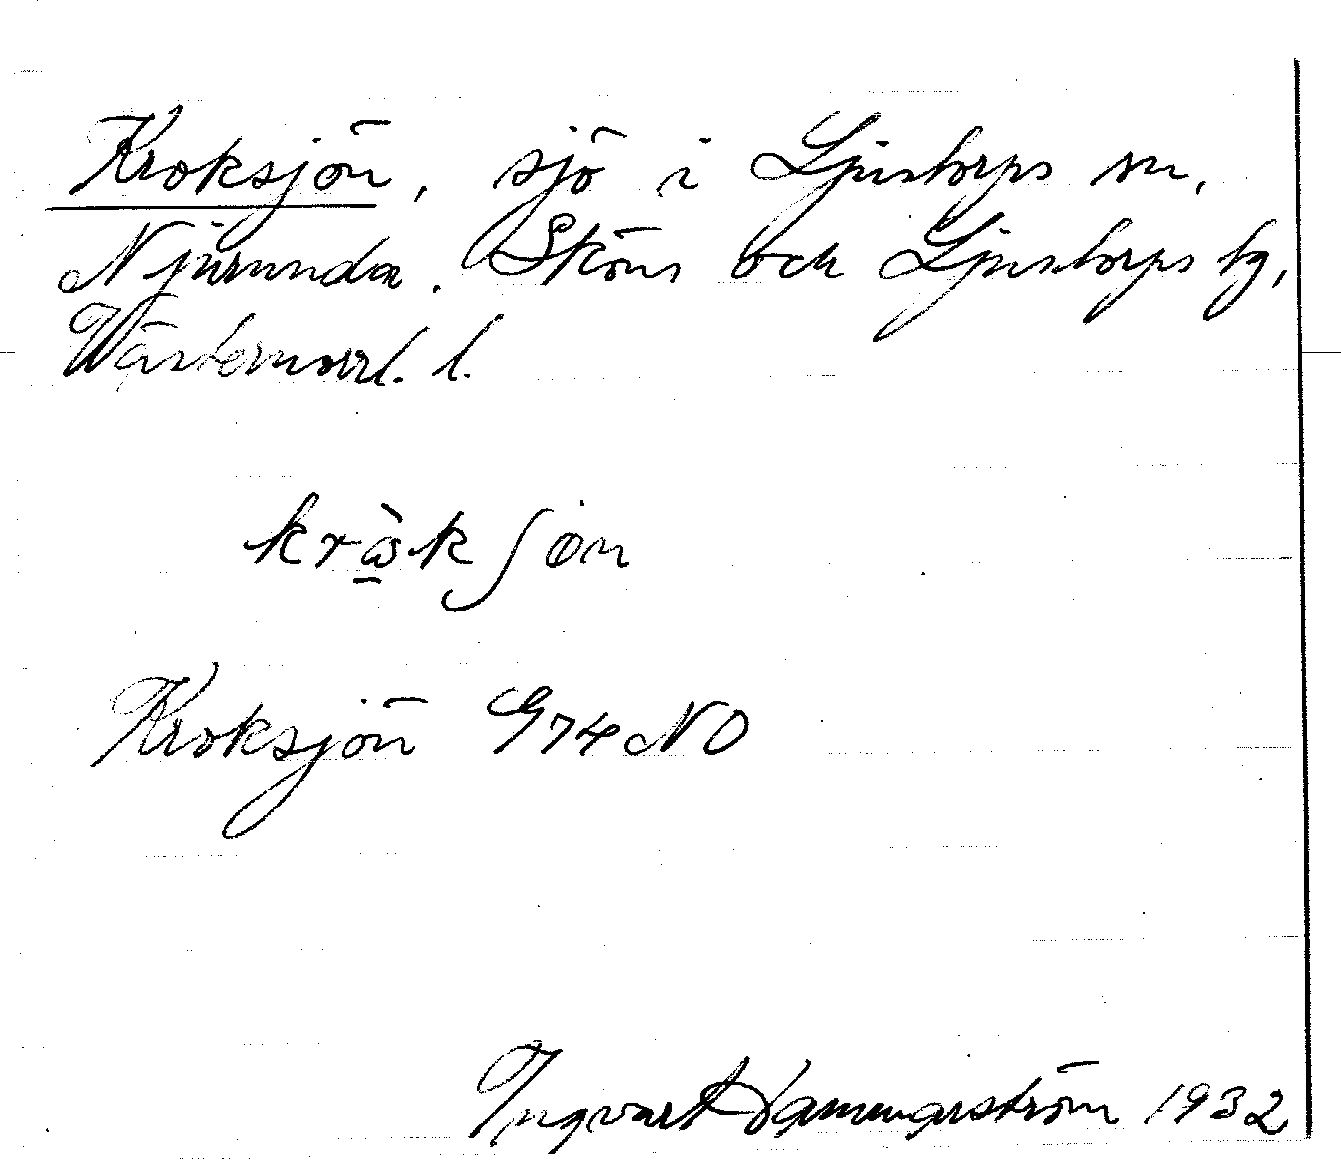 Kroksjön, sjö i Ljustorps sn,
Njurunda, Sköns och Ljustorps tg,
Västernorrl. l.
Kroksjön G74 NO
Ingvart Hammarström 1932